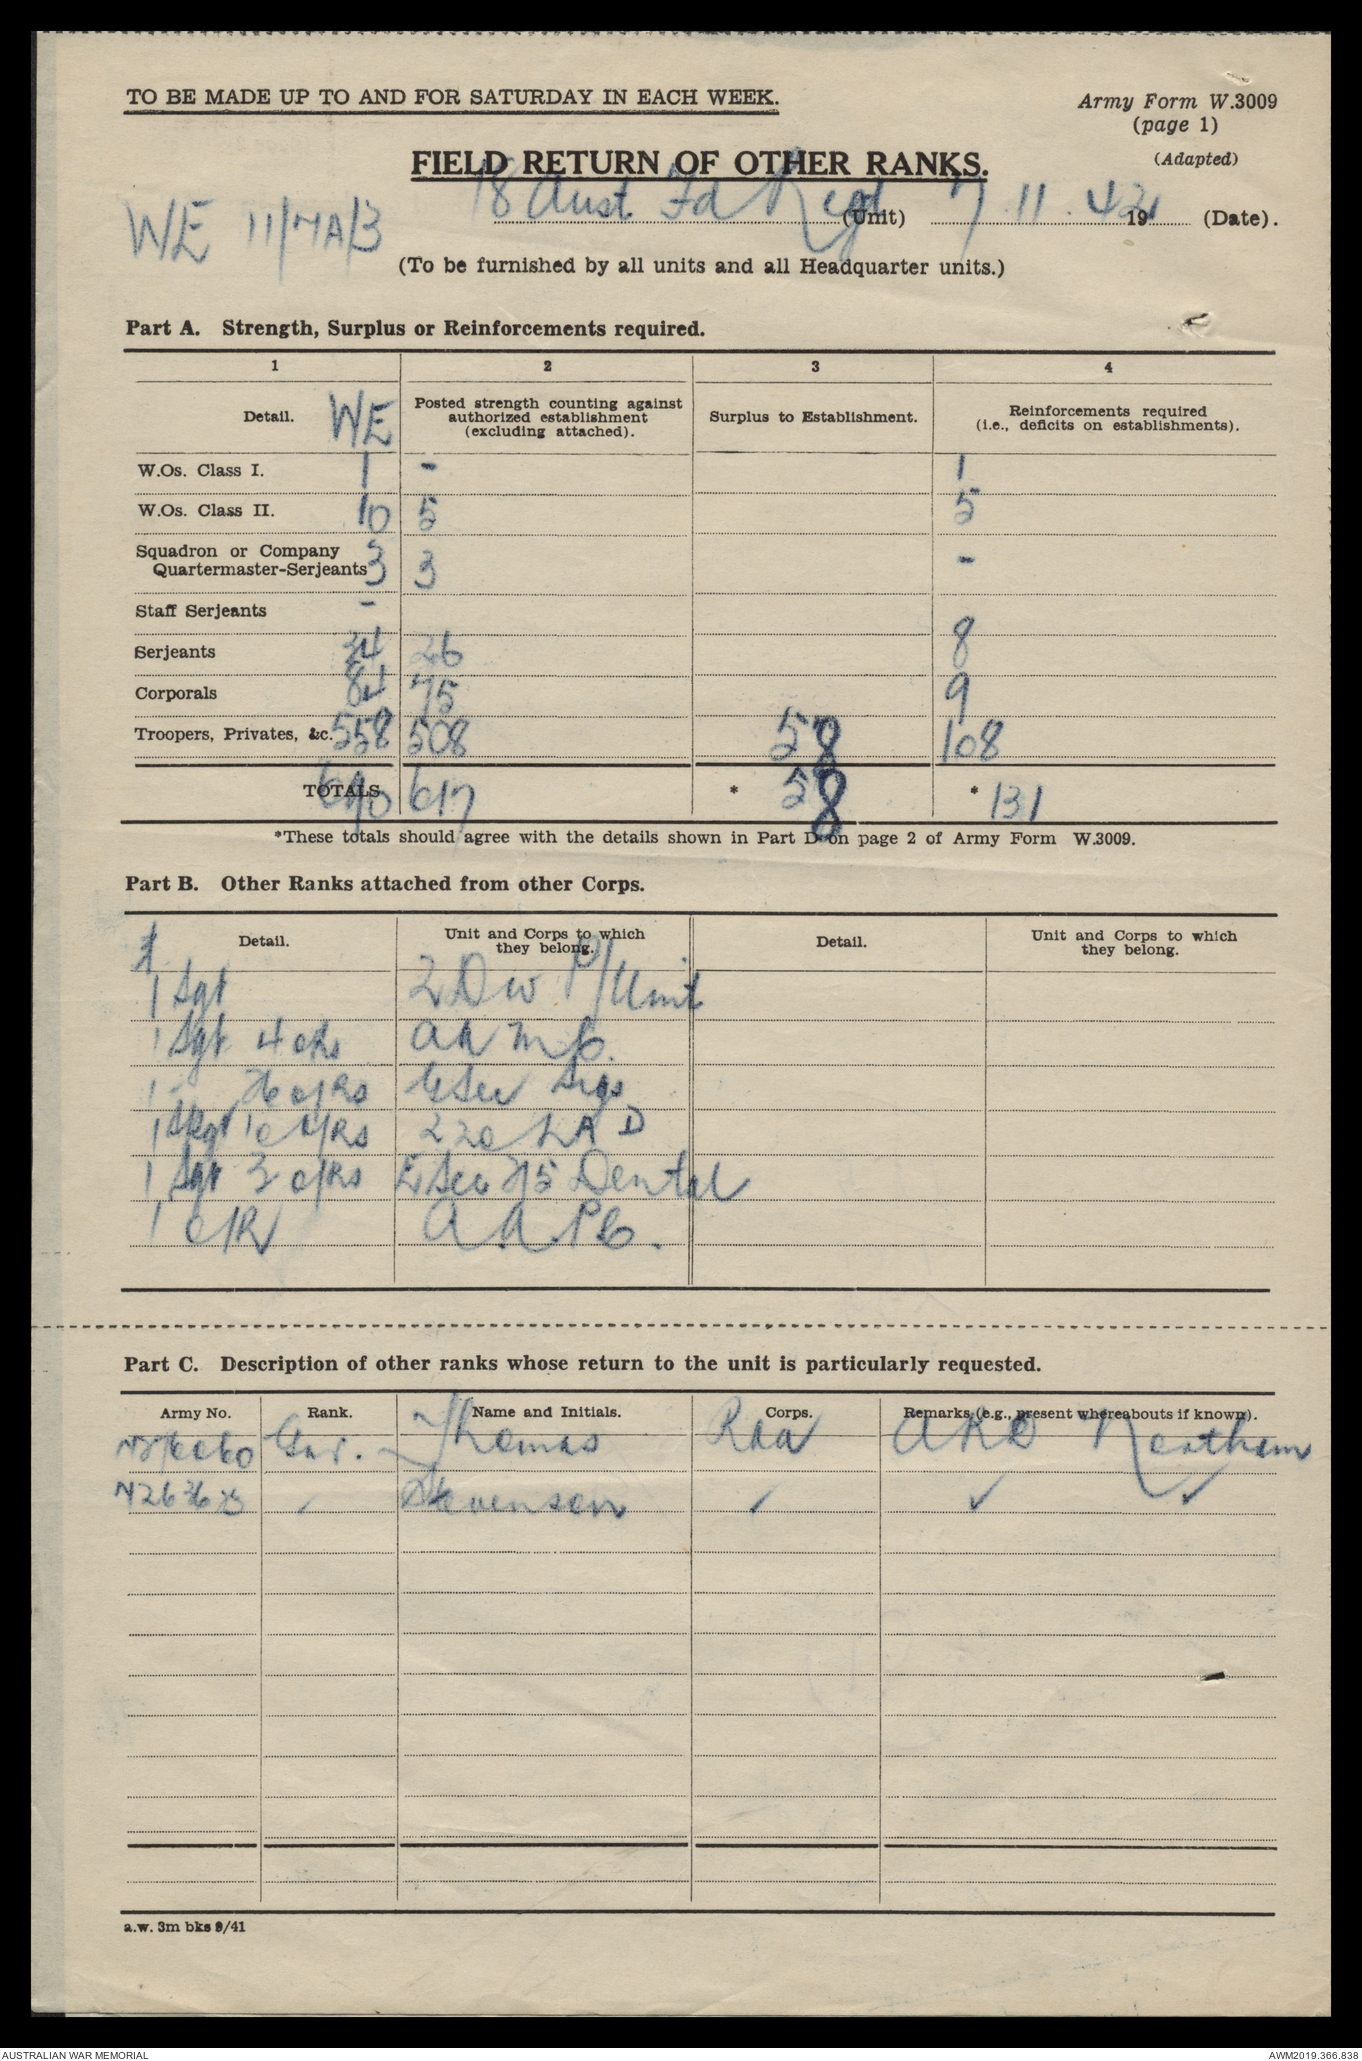 TO BE MADE UP TO AND FOR SATURDAY IN EACH WEEK.
Army Form W.3009
(page 1)
(Adapted)
FIELD RETURN OF OTHER RANKS.
18 Aust. Fd Regt (Unit) 7.11.42 19 (Date).
WE 11/7A/3
(To be furnished by all units and all Headquarter units.)
Part A. Strength, Surplus or Reinforcements required.
1 2 3 4
Detail. WE Posted strength counting against authorized establishment (excluding attached). Surplus to Establishment. Reinforcements required (i.e., deficits on establishments).
W.Os. Class I. 1 - 1
W.Os. Class II. 10 5 5
Squadron or Company
Quartermaster-Serjeants 3 3 -
Staff Serjeants -
Serjeants 34 26 8
Corporals 84 75 9
Troopers, Privates, &c. 558 508 58 108
TOTALS 690 617 * 58 * 131
*These totals should agree with the details shown in Part D on page 2 of Army Form W.3009.
Part B. Other Ranks attached from other Corps.
Detail. Unit and Corps to which they belong. Detail. Unit and Corps to which they belong.
1 Sgt 2 Div P/Unit
1 Sgt 4 ORs AAMC.
o/Rs Sec Sigs
1 o/Rs 220 LAD
1 Sgt 3 o/Rs Sec Dental
1 O/R A.A.P.C.
Part C. Description of other ranks whose return to the unit is particularly requested.
Army No. Rank. Name and Initials. Corps. Remarks (e.g., present whereabouts if known).
Gnr. Thomas RAA ARD Northam
Stevenson ✓ ✓ ✓
a.w. 3m bks 9/41
AUSTRALIAN WAR MEMORIAL
AWM2019.366.838